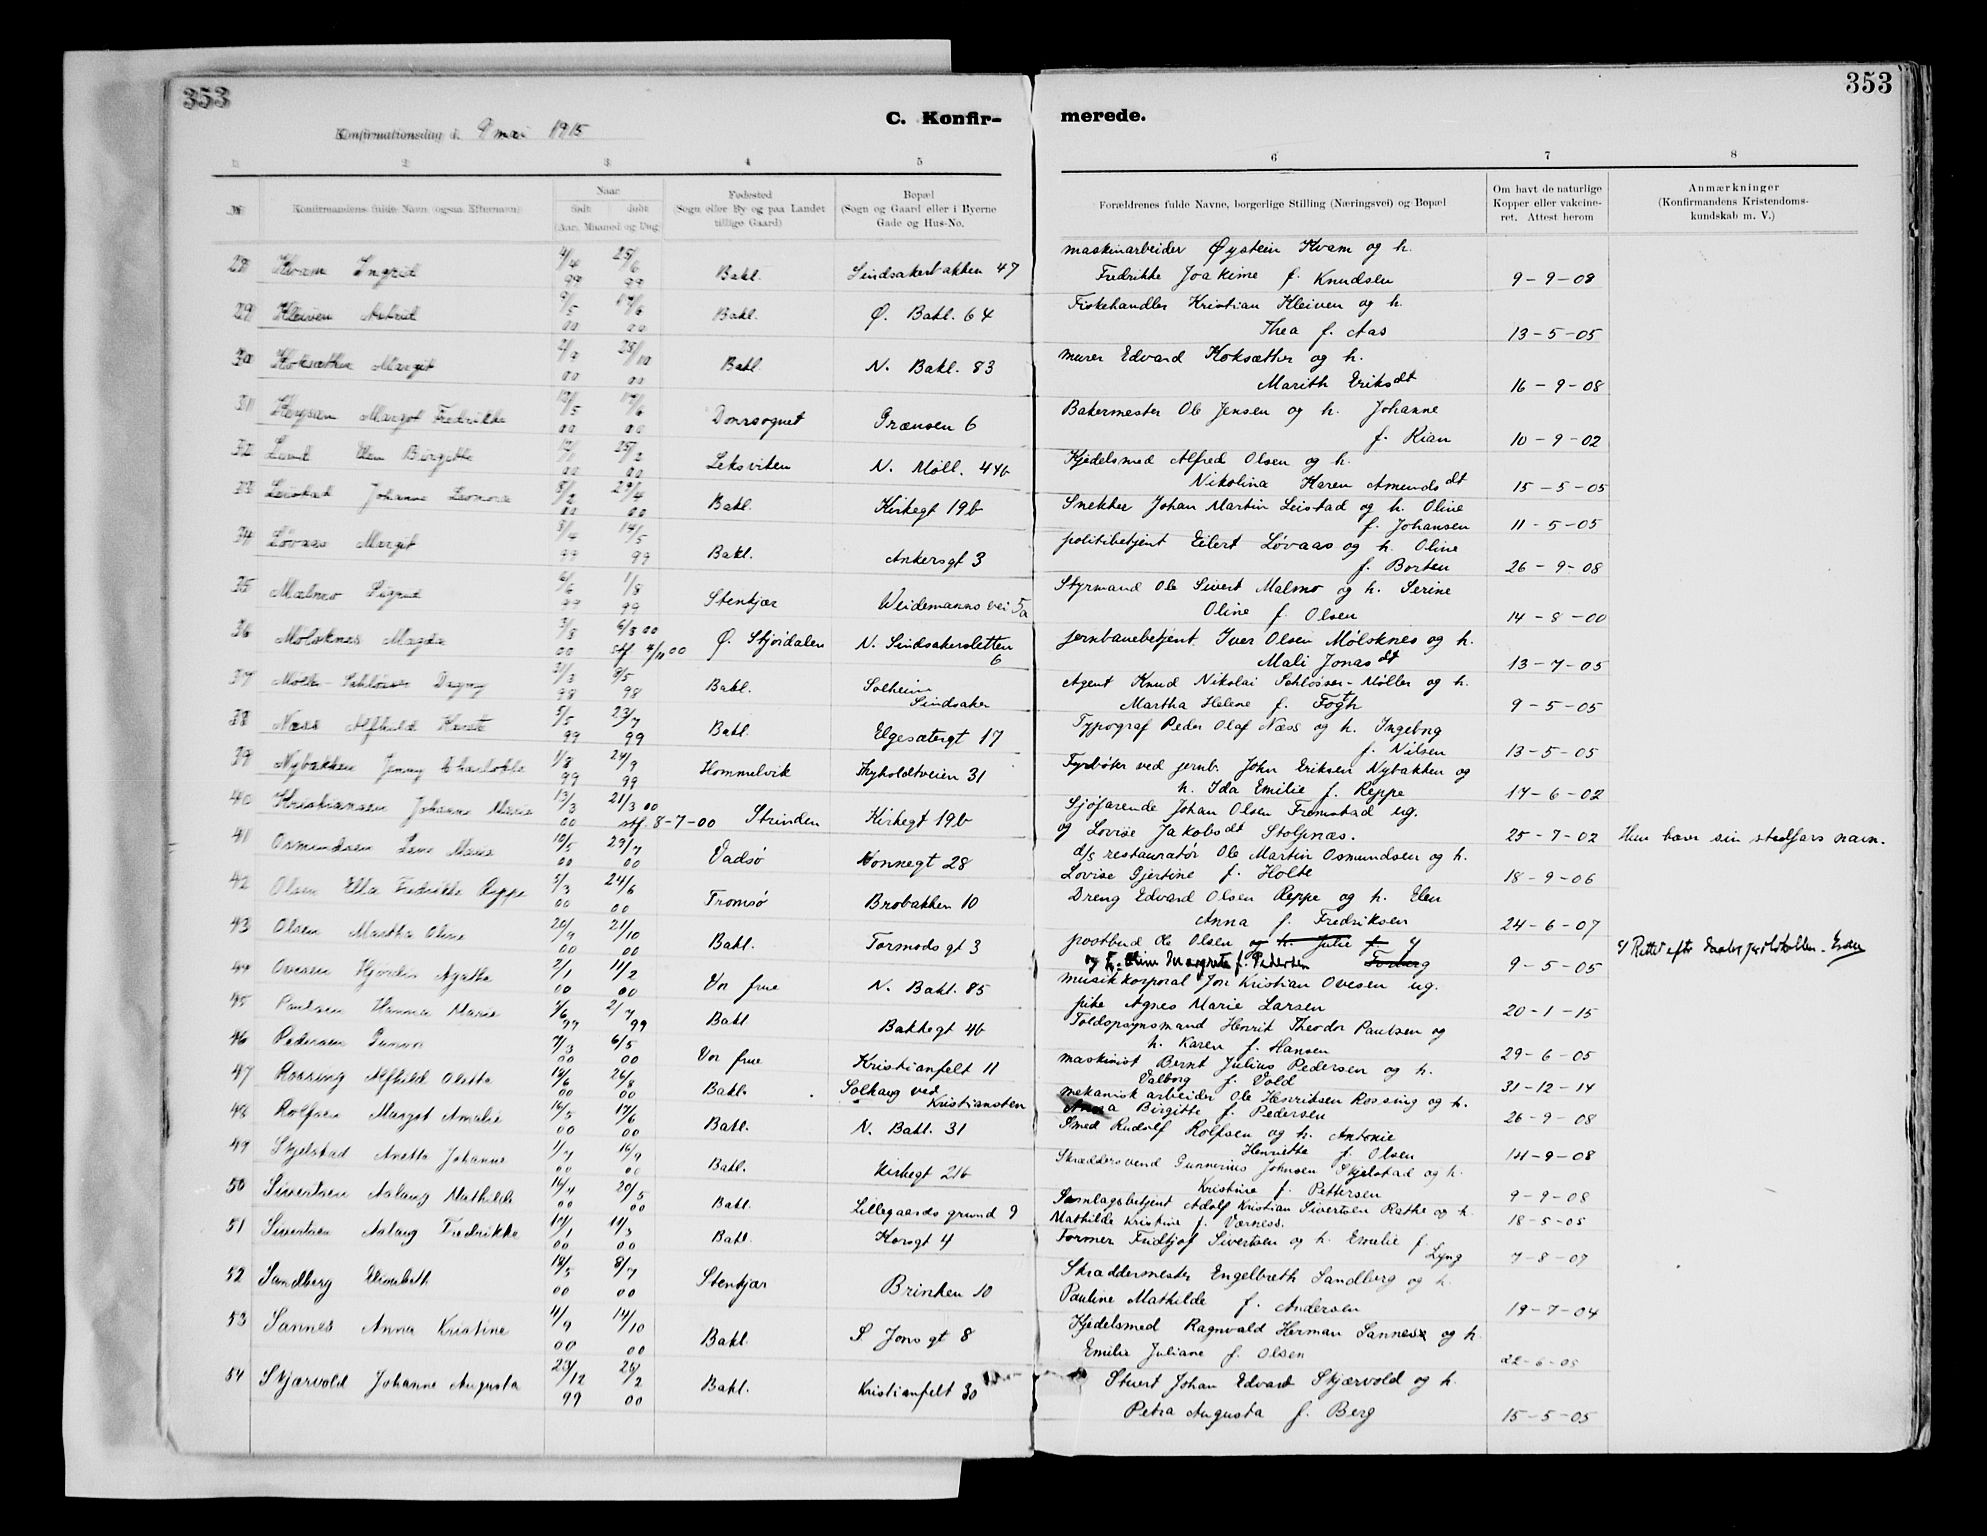 353
353
C. Konfir-
merede.
Konfirmationsdag d. 9 mai 1915
1 2 3 4 5 6 7 8
№
Konfirmandens fulde Navn (ogsaa Efternavn)
Naar
født døbt
(Aar, Maaned og Dag)
Fødested
(Sogn eller By og paa Landet
tillige Gaard)
Bopæl
(Sogn og Gaard eller i Byerne
Gade og Hus-No.
Forældrenes fulde Navne, borgerlige Stilling (Næringsvei) og Bopæl
Om havt de naturlige
Kopper eller vakcine-
ret. Attest herom
Anmærkninger
(Konfirmandens Kristendoms-
kundskab m. V.)
28 Kvam Ingrid 4/4 99 25/6 99 Bakl. Sindsakerbakken 47 maskinarbeider Øystein Kvam og h.
Fredrikke Joakime f. Knudsen 9-9-08
29 Kleiven Astrid 9/5 00 17/6 00 Bakl. Ø. Bakl. 64 Fiskehandler Kristian Kleiven og h.
Thea f. Aas 13-5-05
30 Koksæther Margit 2/9 00 28/10 00 Bakl. N. Bakl. 83 murer Edvard Koksæther og h.
Marith Eriksdt 16-9-08
31 Margot Fredrikke 00 17/6 00 Domsognet Grænsen 6 Bakermester Ole Jensen og h. Johanne
f. Kian 10-9-02
32 Birgitte 00 25/2 00 Leksviken N. Møll. 44b Kjedelsmed Alfred Olsen og h.
Nikolina Karen Amundsdt 15-5-05
33 Leistad Johanne Leonora 8/2 00 29/4 00 Bakl. Kirkegt 19b Snekker Johan Martin Leistad og h. Oline
f. Johansen 11-5-05
34 Løvaas Margit 3/4 99 14/5 99 Bakl. Ankersgt 3 politibetjent Eilert Løvaas og h. Oline
f. Borten 26-9-08
35 Malmo Sigrid 6/6 99 1/8 99 Stenkjær Weidemannsvei 5a Styrmand Ole Sivert Malmo og h. Serine
Oline f. Olsen 14-8-00
36 Mølsknes Magda 3/3 00 6/3 00 stf 4/11 00 Ø. Stjørdalen N. Sindsakersletten
6 jernbanebetjent Iver Olsen Mølsknes og h.
Mali Jonasdt 13-7-05
37 Møller-Schlösser Dagny 31/3 98 8/5 98 Bakl. Solheim
Sindsaker Agent Knud Nikolai Schlösser-Møller og h.
Martha Helene f. Fogh 9-5-05
38 Næss Alfhild 5/5 99 23/7 99 Bakl. Elgesætergt 17 Typograf Peder Olaf Næss og h. Ingeborg
f. Nilsen 13-5-05
39 Nybakken Jenny Charlotte 1/8 99 24/9 99 Hommelvik Thyholdtveien 31 Fyrbøter ved jernb. John Eriksen Nybakken og
h. Ida Emilie f. Reppe 14-6-02
40 Kristiansen Johanne Marie 13/3 00 21/3 00 stf. 8-7-00 Strinden Kirkegt 19b Sjøfarende Johan Olsen Fremstad ug.
og Lovise Jakobsdt Stolpnæs. 25-7-02 Hun bærer sin stedfars navn.
41 Osmundsen Lene Marie 10/5 00 29/7 00 Vadsø Nonnegt 28 d/s restauratør Ole Martin Osmundsen og h.
Lovise Gjertine f. Holte 18-9-06
42 Olsen Ella Fredrikke Reppe 5/3 00 24/6 00 Tromsø Brobakken 10 Dreng Edvard Olsen Reppe og h. Elen
Anna f. Fredriksen 24-6-07
43 Olsen Martha Oline 20/9 00 21/10 00 Bakl. Tormods gt 3 postbud Ole Olsen og h. Julie f.
Forberg
og h. Margrete f. Pedersen 9-5-05 Rettet efter
44 Ovesen Hjørdis Agathe 2/1 00 11/2 00 Vor frue N. Bakl. 85 musikkorporal Jon Kristian Ovesen ug.
pike Agnes Marie Larsen 20-1-15
45 Paulsen Hanna Marie 3/6 99 2/7 99 Bakl Bakkegt 4b Toldopsynsmand Henrik Theodor Paulsen og
h. Karen f. Hansen 29-6-05
46 Pedersen Gunvor 7/3 00 6/5 00 Vor frue Kristianfelt 11 maskinist Bernt Julius Pedersen og h.
Valborg f. Vold 31-12-14
47 Rossing Alfhild Oletta 14/6 00 26/8 00 Bakl. Solhaug ved
Kristiansten mekanisk arbeider Ole Henriksen Rossing og h.
Anna Birgitte f. Pedersen 26-9-08
48 Rolfsen Margot Amalie 16/5 00 17/6 00 Bakl. N. Bakl. 31 Smed Rudolf Rolfsen og h. Antonie
Henriette f. Olsen 14-9-08
49 Skjelstad Anetta Johanne 1/7 00 16/9 00 Bakl. Kirkegt 21b Skræddersvend Gunnerius Johnsen Skjelstad og h.
Kristine f. Pettersen 9-9-08
50 Sivertsen Aslaug Mathilde 14/4 00 20/5 00 Bakl. Lillegaards grund 9 Samlagsbetjent Adolf Kristian Sivertsen Rathe og h.
Mathilde Kristine f. Værness. 18-5-05
51 Sivertsen Aslaug Fredrikke 14/1 00 11/3 00 Bakl. Korsgt 4 Former Fridtjof Sivertsen og h. Emelie f.
Lyng 7-8-07
52 Sandberg Elisabeth 14/5 00 8/7 00 Stenkjær Brinken 10 Skræddermester Engelbreth Sandberg og h.
Pauline Mathilde f. Andersen 19-7-04
53 Sannes Anna Kristine 4/9 00 14/10 00 Bakl. S Jons gt 8 Kjedelsmed Ragnvald Herman Sannes og h.
Emilie Juliane f. Olsen 22-6-05
54 Skjærvold Johanne Augusta 23/12 99 26/2 00 Bakl. Kristianfelt 30 Stuert Johan Edvard Skjærvold og h.
Petra Augusta f. Berg 15-5-05